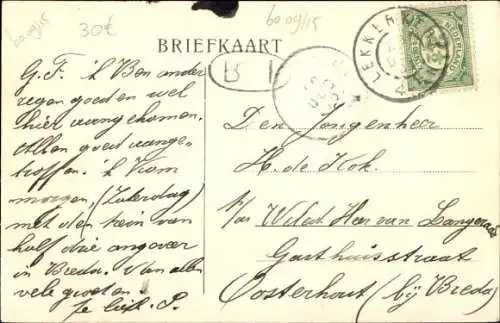 bo.09/15
30€
bo.09/15
BRIEFKAART
LEKKERKERK
NEDERLAND
B I
G.F. 'k Ben onder
regen goed en wel
hier aangekomen.
Allen goed aange-
troffen. 'k Kom
morgen, (Zaterdag)
met den trein van
half drie ongeveer
in Breda. Van allen
vele groeten.
Je liefh. P.
Den Jongenheer
H. de Kok.
p/a Wed. Heer van Langeraad
Gasthuisstraat
Oosterhout (bij Breda)